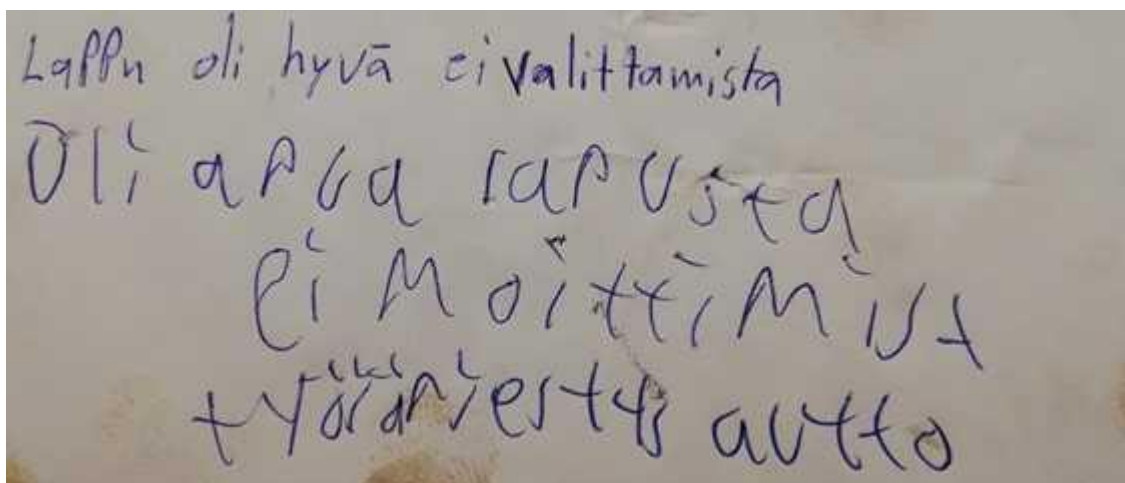 Lappu oli hyvä ei valittamista
Oli apua lapusta
ei moittimist
työjärjestys autto